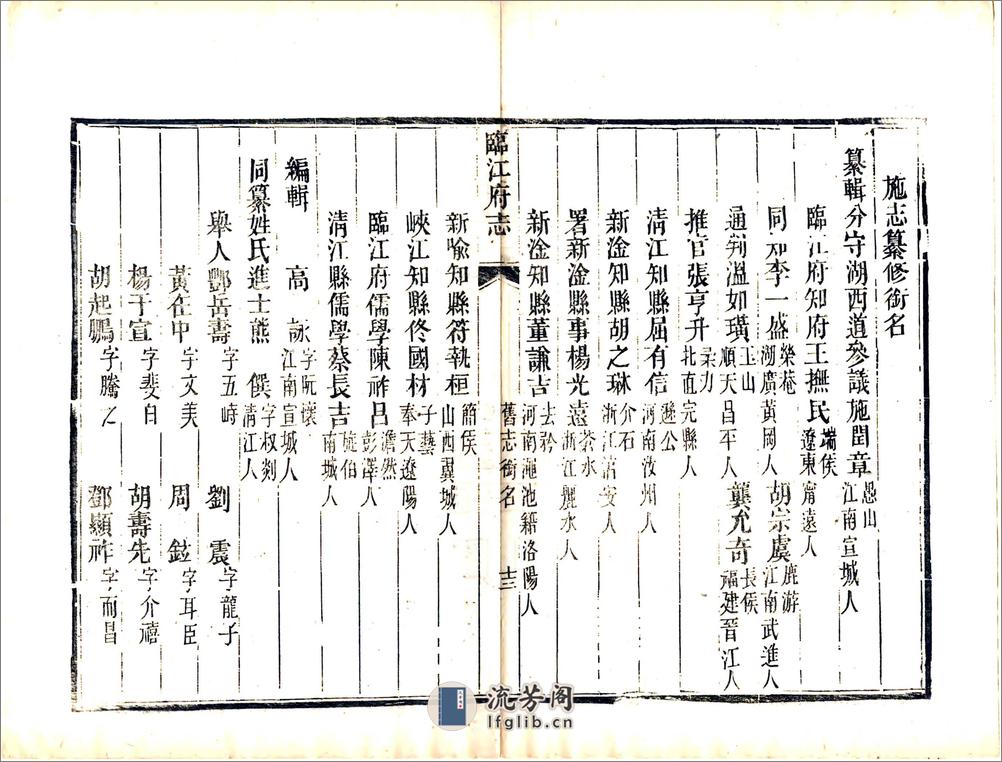 施志纂修銜名
纂輯分守湖西道參議施閏章愚山江南宣城人
臨江府知府王撫民端侯遼東甯遠人
同知李一盛榮菴湖廣黃岡人 胡宗虞鹿游江南武進人
通判溫如璜玉山順天昌平人 龔允奇長侯福建晉江人
推官張亨升柔力北直完縣人
清江知縣屈有信遜公河南汝州人
新淦知縣胡之琳介石浙江清安人
署新淦縣事楊光遠茶水浙江麗水人
新淦知縣董謙吉去矜河南澠池籍洛陽人
臨江府志
舊志銜名
十三
新喻知縣符執桓簡侯山西翼城人
峽江知縣佟國材子藝奉天遼陽人
臨江府儒學陳祚昌澹然彭澤人
清江縣儒學蔡長吉旋伯南城人
編輯 高詠字阮懷江南宣城人
同纂姓氏進士熊僎字叔剡清江人
舉人酆岳壽字五峙 劉震字龍子
黃在中字文美 周鉉字耳臣
楊于宣字斐白 胡壽先字介禧
胡起鵬字騰之 鄧顯祚字而昌
流芳阁
lfglib.cn